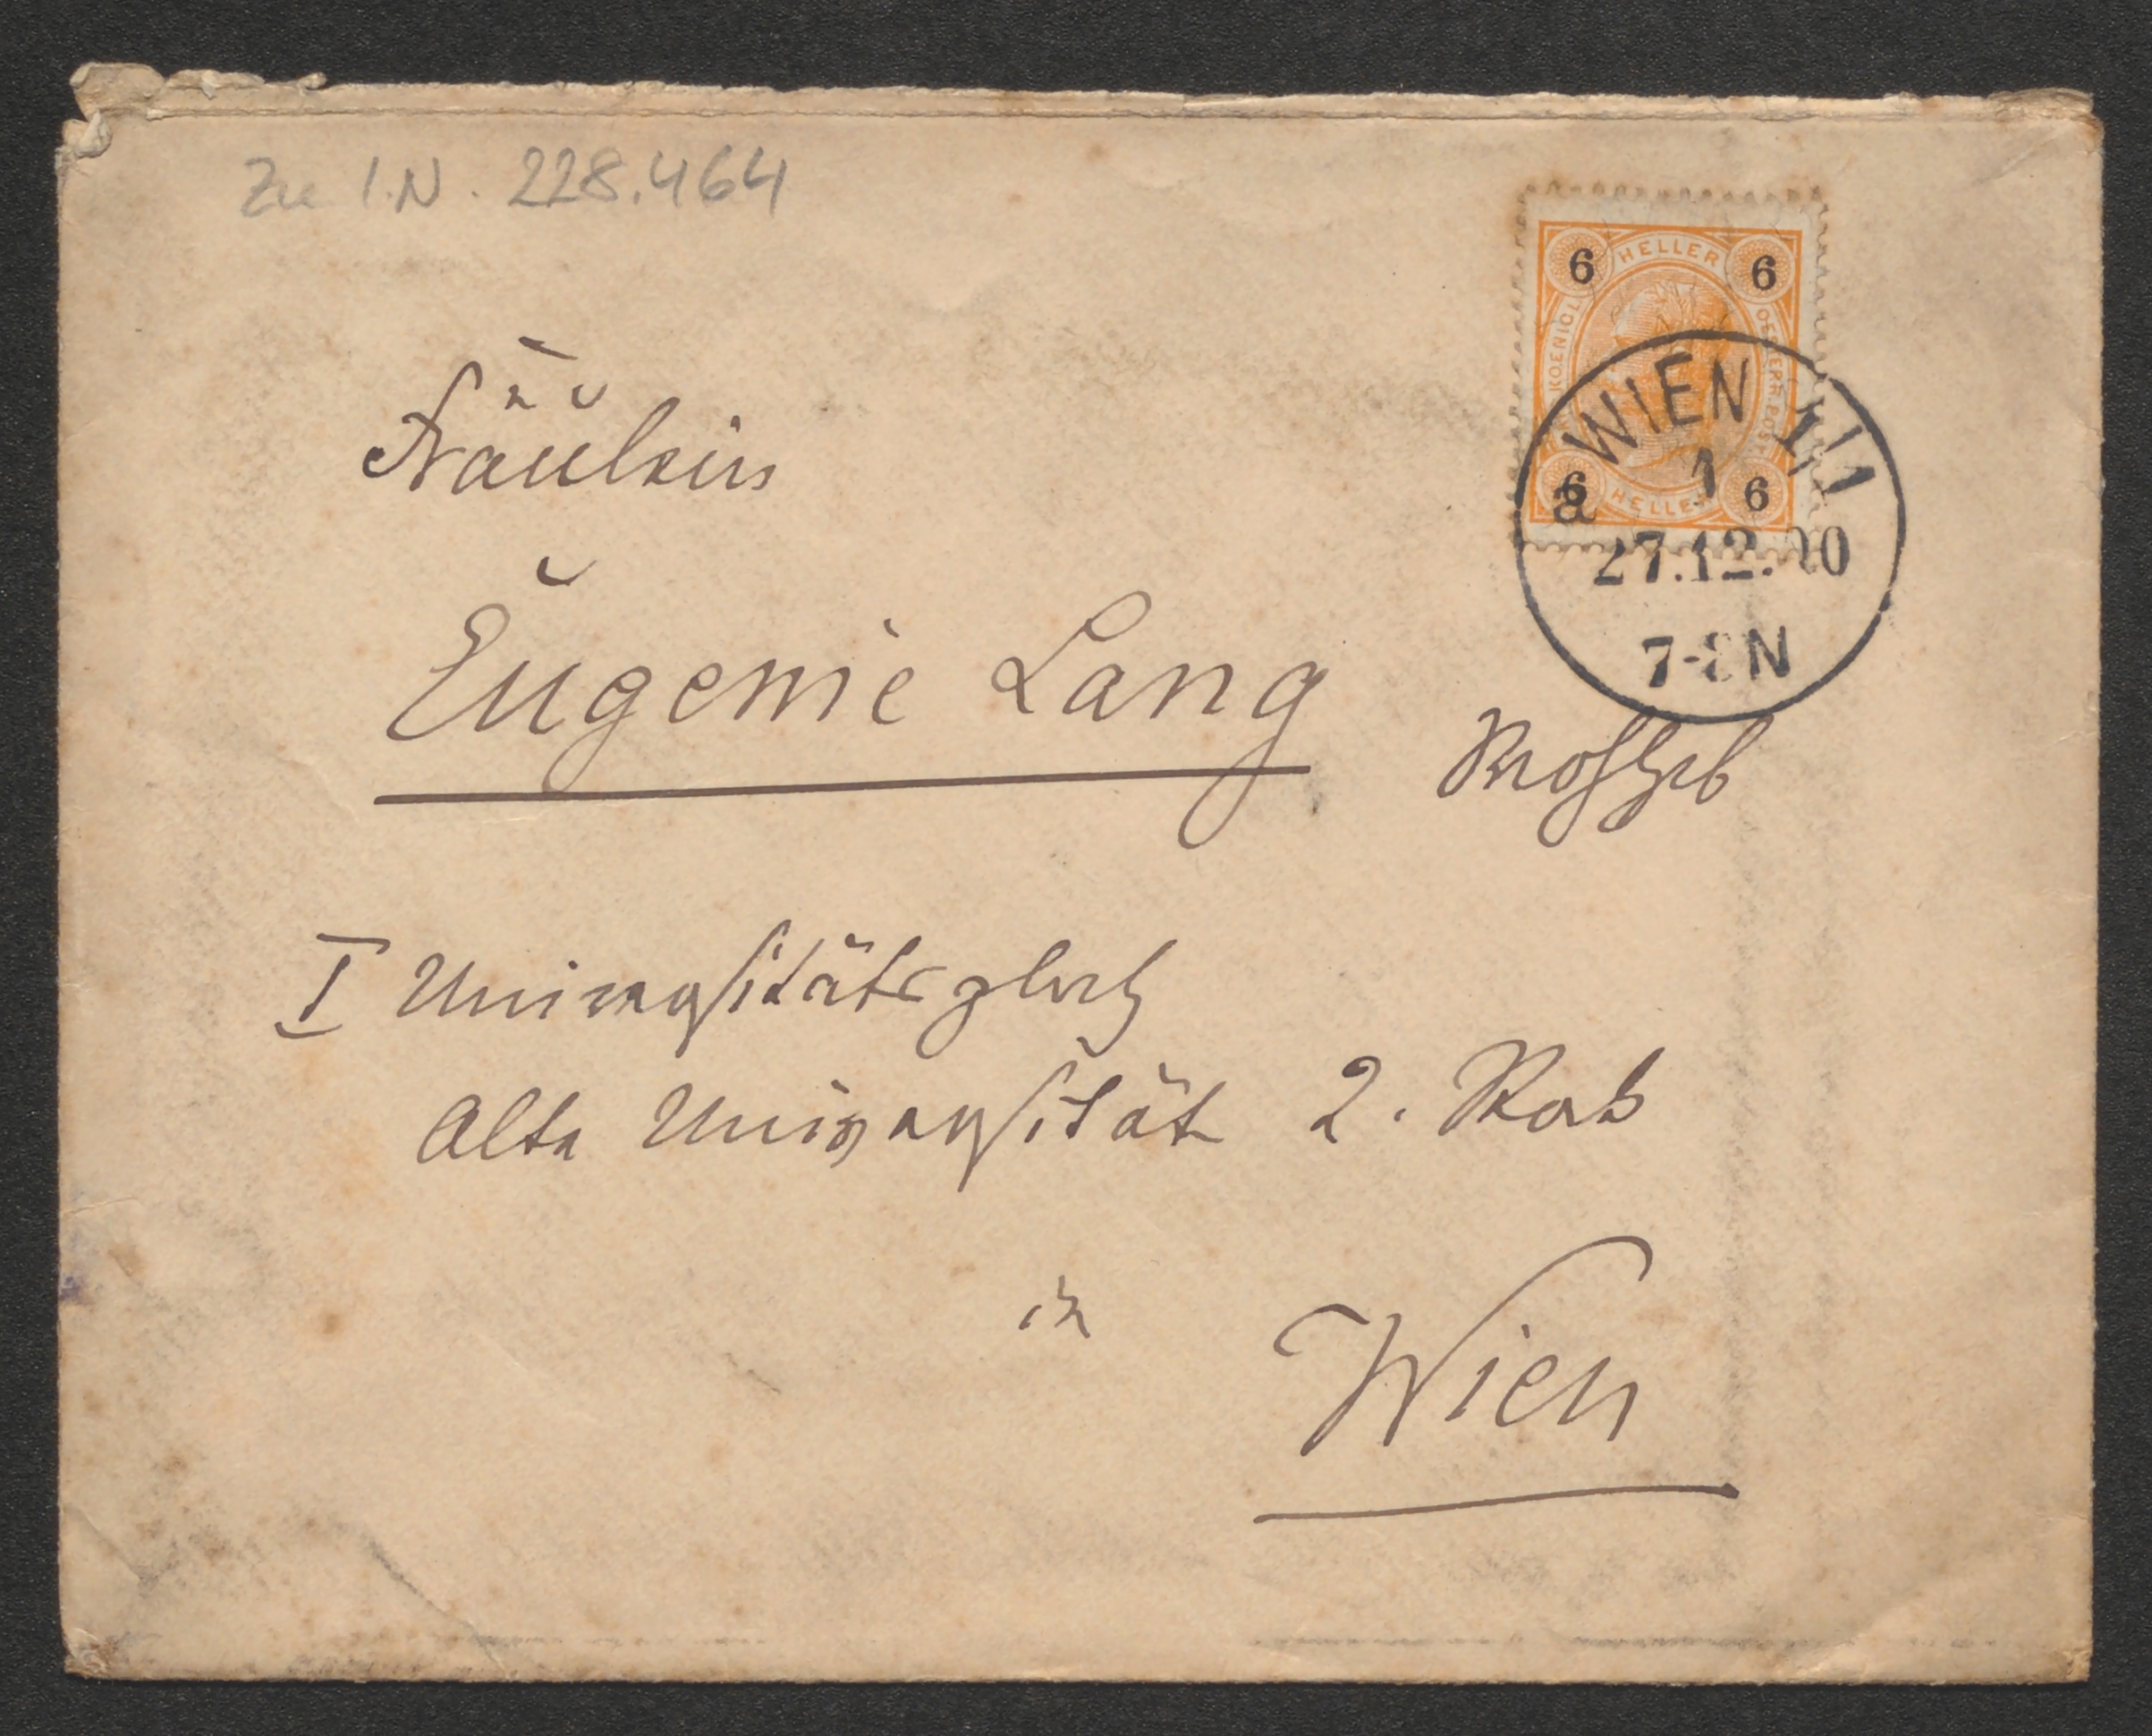 Zu I.N. 228.464
6 HELLER 6
KOENIGL. OESTERR. POST
6 HELLER 6
WIEN 1/1
1
a
27.12.00
7-8N
Fräulein
Eugenie Lang
Wohlgeb
I Universitätsplatz
Alte Universität 2. Stock
in
Wien